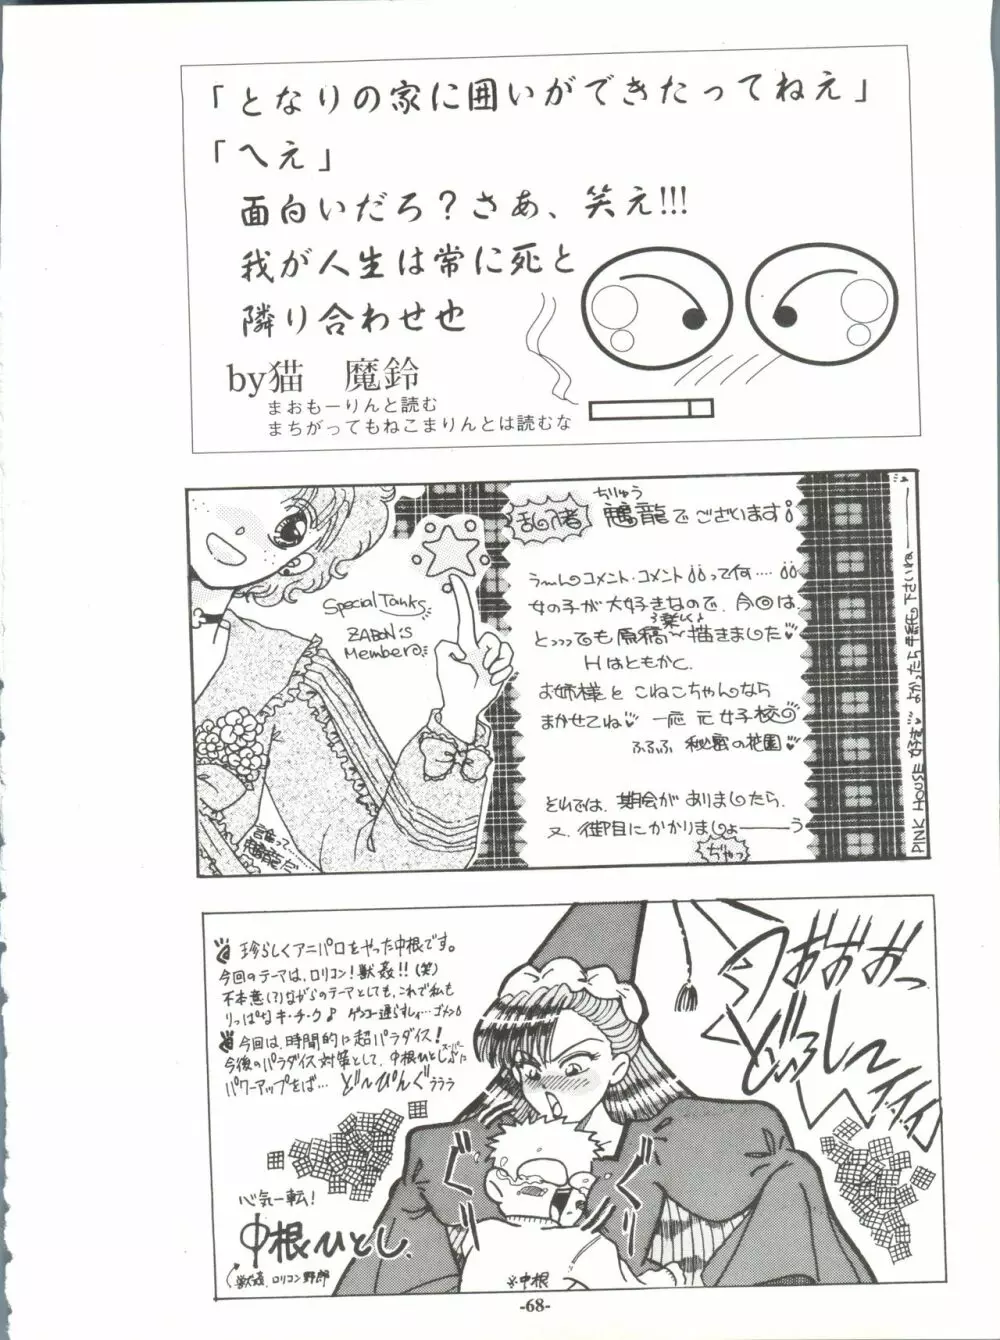 「となりの家に囲いができたってねえ」
「へえ」
面白いだろ？さあ、笑え!!!
我が人生は常に死と
隣り合わせ也
by猫　魔鈴
まおもーりんと読む
まちがってもねこまりんとは読むな
ちりゅう
龍でございます
うーんのコメント・コメントって何‥‥
女の子が大好きなので、今回は、
とってても原稿〜描きました♥
Hはともかく、
お姉様と こねこちゃんなら
まかせてね♥ 一応 元女子校
ふふふ 秘密の花園♥
それでは、機会がありましたら、
又、御目にかかりましょーーう
ぢゃっ
PINK HOUSE 好き♥ よかったら手紙下さいねー
Special Tanks
ZABON's
Member
誰って……
龍だ
珍らしくアニパロをやった中根です。
今回のテーマは、ロリコン！獣姦!!(笑)
不本意(?)ながらのテーマとしても、これで私も
りっぱなキ・チ・ク♪ ゲンコー遅らすしィ…ゴメン
今回は、時間的に超パラダイス！
今後のパラダイス対策として、中根ひとしぷたスーパー
パワーアップをば… どーぴんぐううう
心気一転！
中根ひとし
獣姦、ロリコン野郎
おおおっ
※中根
-68-